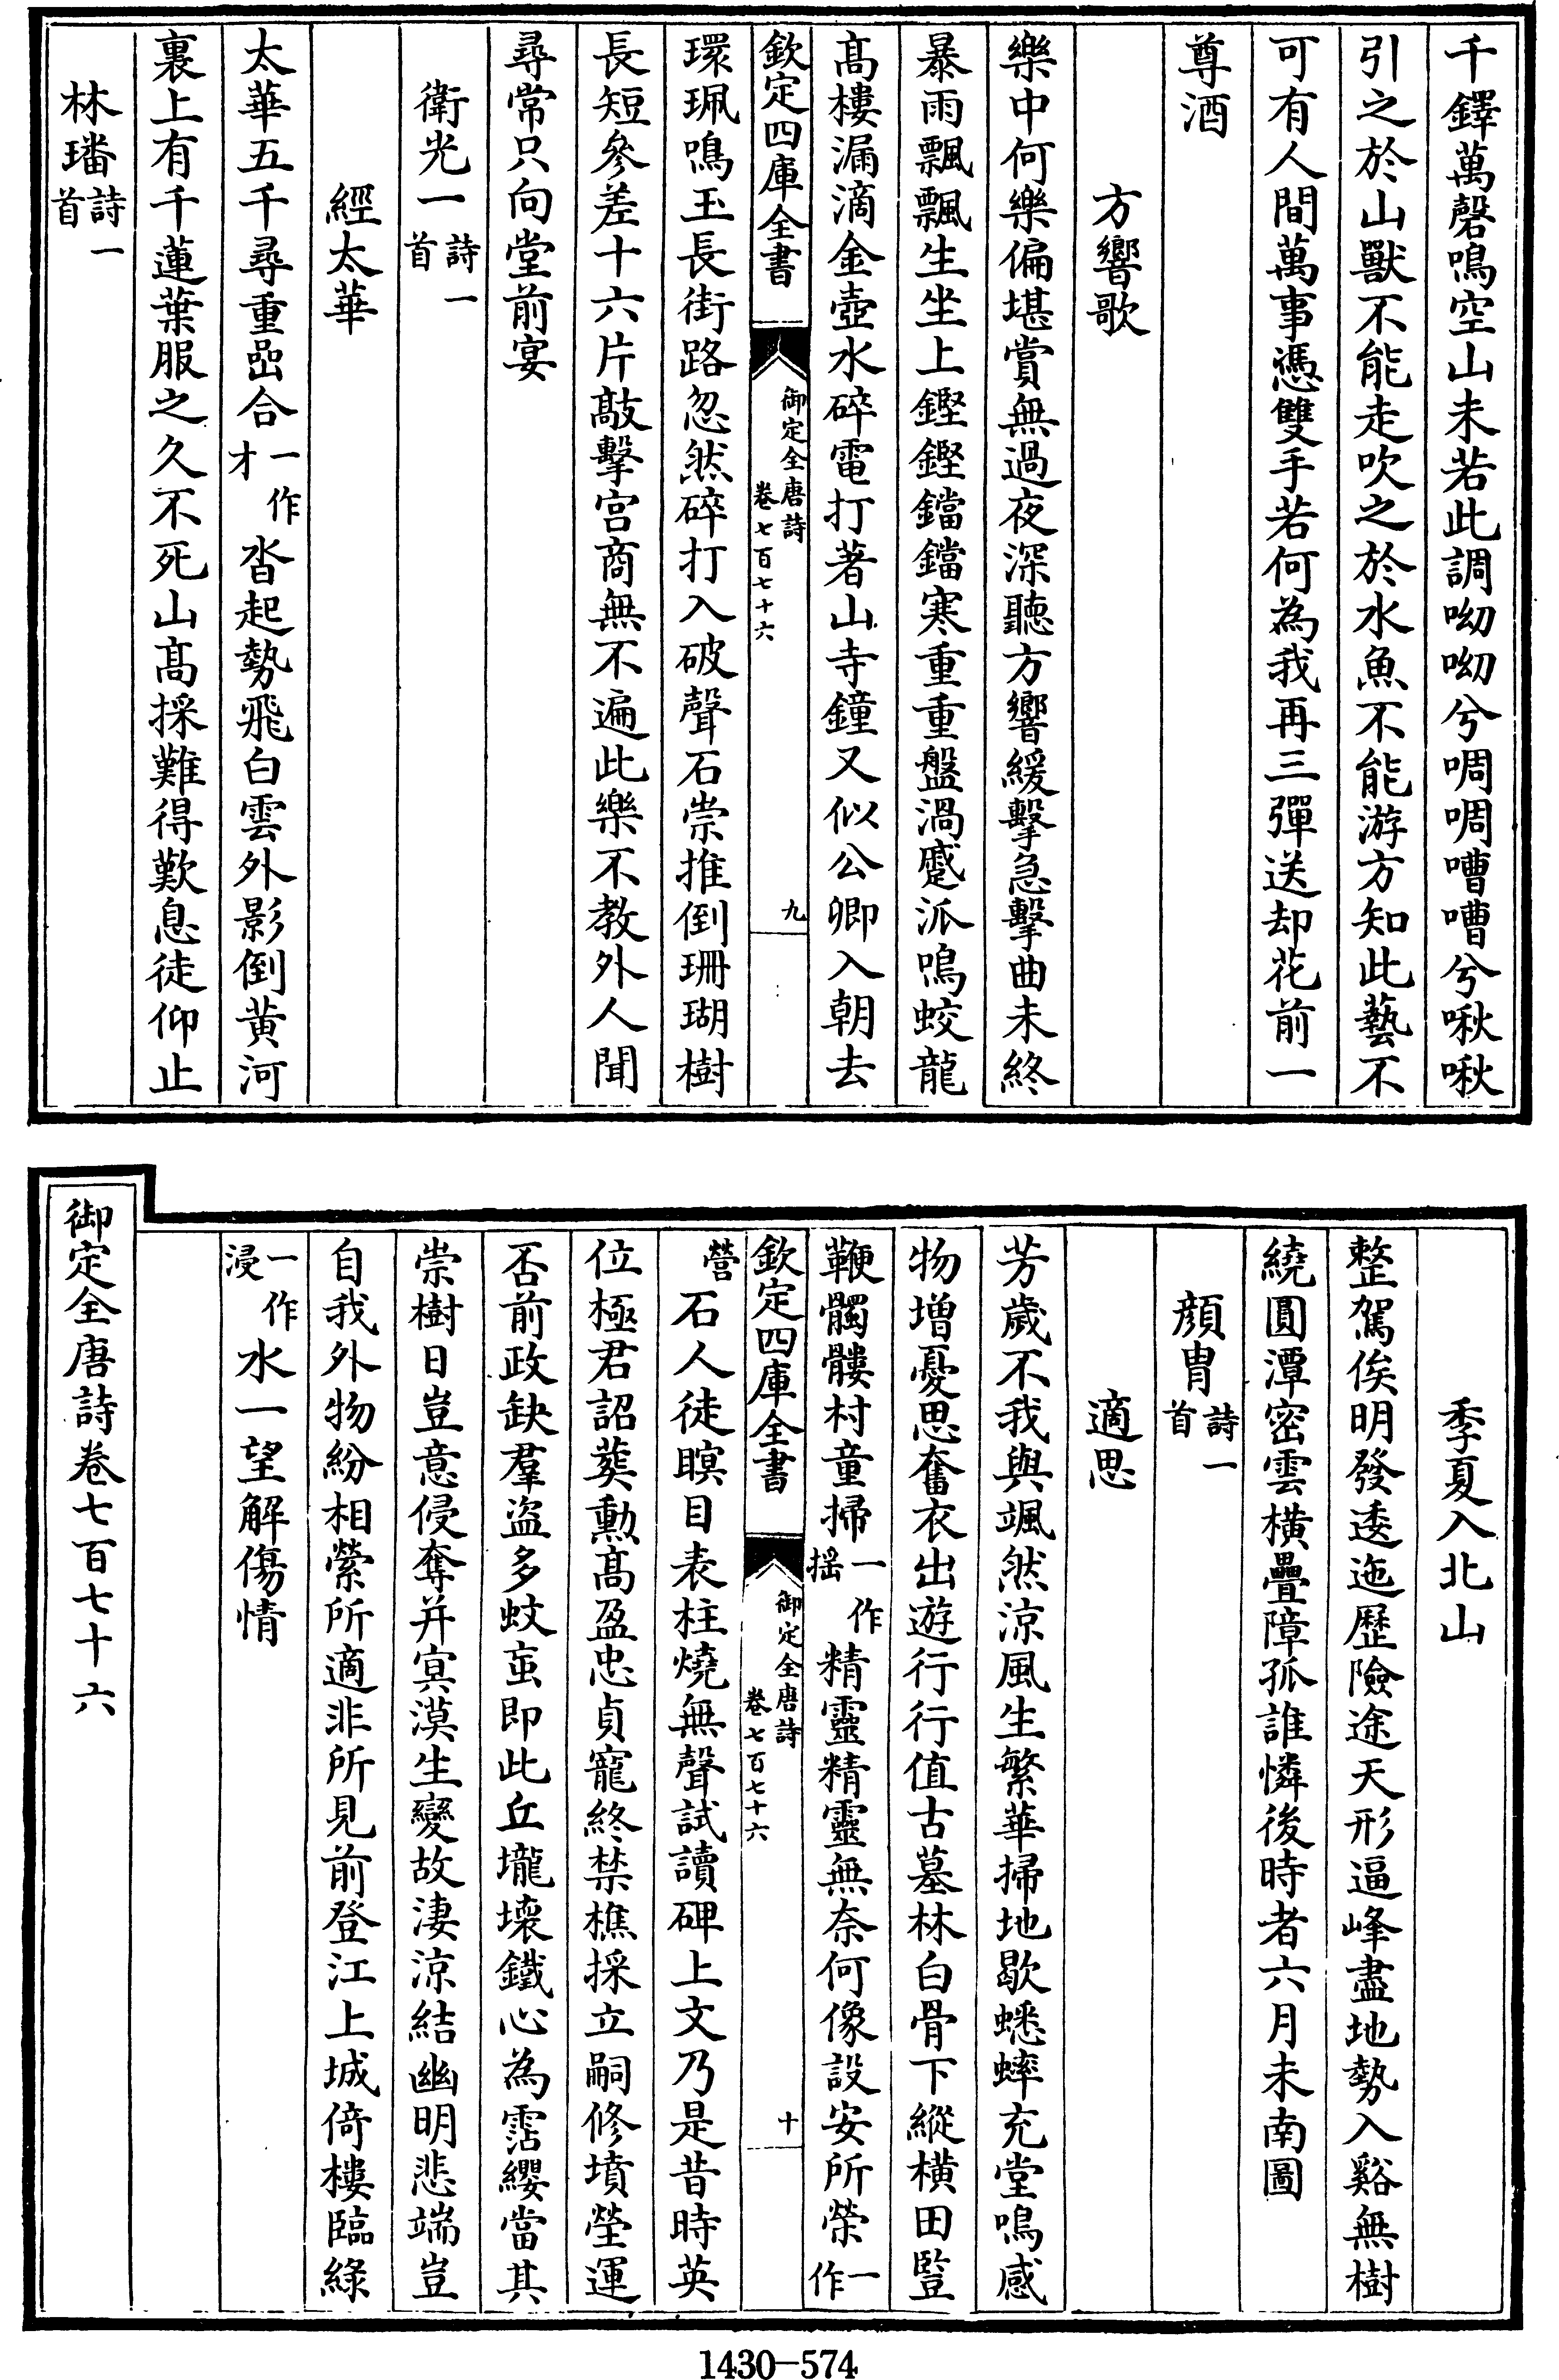 千鐸萬磬鳴空山未若此調呦呦兮啁啁嘈嘈兮啾啾
引之於山獸不能走吹之於水魚不能游方知此藝不
可有人間萬事憑雙手若何為我再三彈送却花前一
尊酒
方響歌
樂中何樂偏堪賞無過夜深聽方響緩擊急擊曲未終
暴雨飄飄生坐上鏗鏗鐺鐺寒重重盤渦蹙派鳴蛟龍
髙樓漏滴金壺水碎電打著山寺鐘又似公卿入朝去
欽定四庫全書
御定全唐詩
卷七百七十六
九
環珮鳴玉長街路忽然碎打入破聲石崇推倒珊瑚樹
長短參差十六片敲擊宫商無不遍此樂不教外人聞
尋常只向堂前宴
衛光一詩一首
經太華
太華五千尋重嵒合一作才沓起勢飛白雲外影倒黄河
裏上有千蓮葉服之久不死山髙採難得歎息徒仰止
林璠詩一首
季夏入北山
整駕俟明發逶迤歷險途天形逼峰盡地勢入谿無樹
繞圓潭密雲横疊障孤誰憐後時者六月未南圖
顔胄詩一首
適思
芳歲不我與颯然涼風生繁華掃地歇蟋蟀充堂鳴感
物増憂思奮衣出遊行行值古墓林白骨下縱横田豎
鞭髑髏村童掃一作揺精靈精靈無奈何像設安所榮一作
欽定四庫全書
御定全唐詩
卷七百七十六
十
營石人徒瞑目表柱燒無聲試讀碑上文乃是昔時英
位極君詔葬勳髙盈忠貞寵終禁樵採立嗣修墳塋運
否前政缺羣盜多蚊䖟即此丘壠壞鐵心為霑纓當其
崇樹日豈意侵奪并㝠漠生變故淒涼結幽明悲端豈
自我外物紛相縈所適非所見前登江上城倚樓臨綠
一作浸水一望解傷情
御定全唐詩卷七百七十六
1430-574